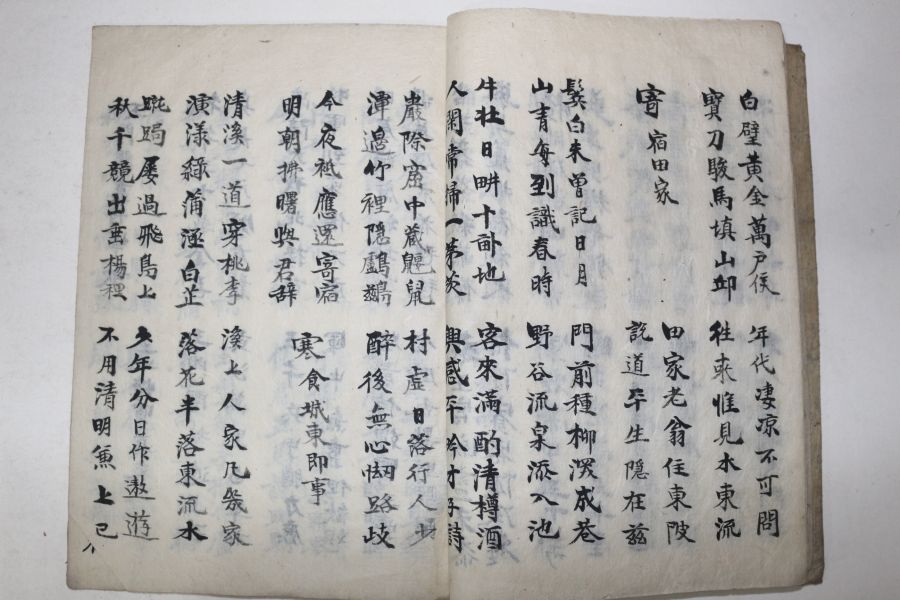 白璧黃金萬戶侯
寶刀駿馬填山邱
年代凄凉不可問
往來惟見水東流
寄宿田家
田家老翁住東陂
說道平生隱在茲
鬂白未曽記日月
山青每到識春時
門前種柳深成巷
野谷流泉添入池
牛壯日畊十畝地
人閑常掃一茅茨
客來滿酌清樽酒
興感平吟才子詩
巖際窟中藏鼴鼠
潭邊竹裡隱鸕鷀
村虛日落行人少
醉後無心㤼路歧
今夜祗應還寄宿
明朝拂曙與君辞
寒食城東即事
清溪一道穿桃李
演漾綠蒲涵白芷
溪上人家凡幾家
落花半落東流水
蹴踘屢過飛鳥上
秋千競出垂楊裡
少年分日作遨遊
不用清明兼上巳